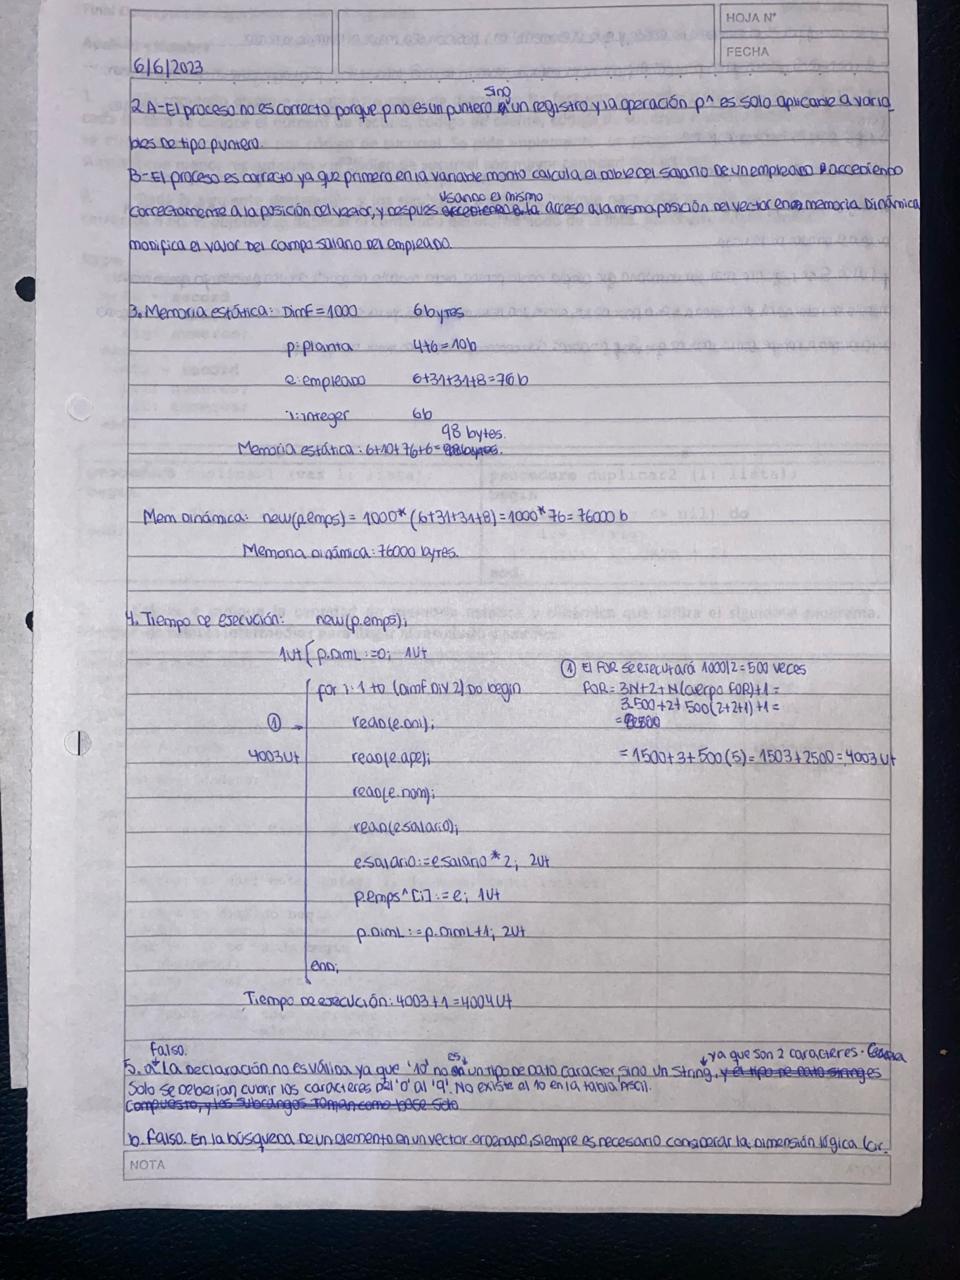 HOJA N°
FECHA
6/6/2023
2 A-El proceso no es correcto porque p no es un puntero sino un registro y la operación p^ es solo aplicable a varia
bles de tipo puntero.
B-El proceso es correcto ya que primero en la variable monto calcula el doble del salario de un empleado accediendo
correctamente a la posición del vector, y después usando el mismo acceso a la misma posición del vector en memoria dinámica
modifica el valor del campo salario del empleado.
3. Memoria estática: DimF=1000 6 bytes
p: planta 4+6=10b
e: empleado 6+31+31+8=76b
i: integer 6b
Memoria estática: 6+10+76+6= 98 bytes.
Mem Dinámica: new(p.emps)= 1000*(6+31+31+8)=1000*76=76000 b
Memoria dinámica: 76000 bytes.
4. Tiempo de ejecución: new(p.emps);
1ut { p.DimL:=0; 1ut
for i:1 to (dimf DIV 2) do begin
① El FOR se ejecutará 1000/2=500 veces
FOR= 3N+2+N(cuerpo FOR)+1=
① read(e.dni);
3.500+2+500(2+2+1)+1=
4003ut read(e.ape);
=1500+3+500(5)=1503+2500=4003ut
read(e.nom);
read(e.salario);
e.salario:=e.salario*2; 2ut
p.emps^[i]:=e; 1ut
p.DimL:=p.DimL+1; 2ut
end;
Tiempo de ejecución: 4003+1=4004ut
Falso.
5. a- La declaración no es válida ya que '10' no es un tipo de dato caracter, sino un string, ya que son 2 caracteres.
Solo se deberían cubrir los caracteres del '0' al '9'. No existe al 10 en la tabla Ascii.
compuesto, y los subrangos toman como base solo
b. Falso. En la búsqueda de un elemento en un vector ordenado, siempre es necesario considerar la dimensión lógica
NOTA